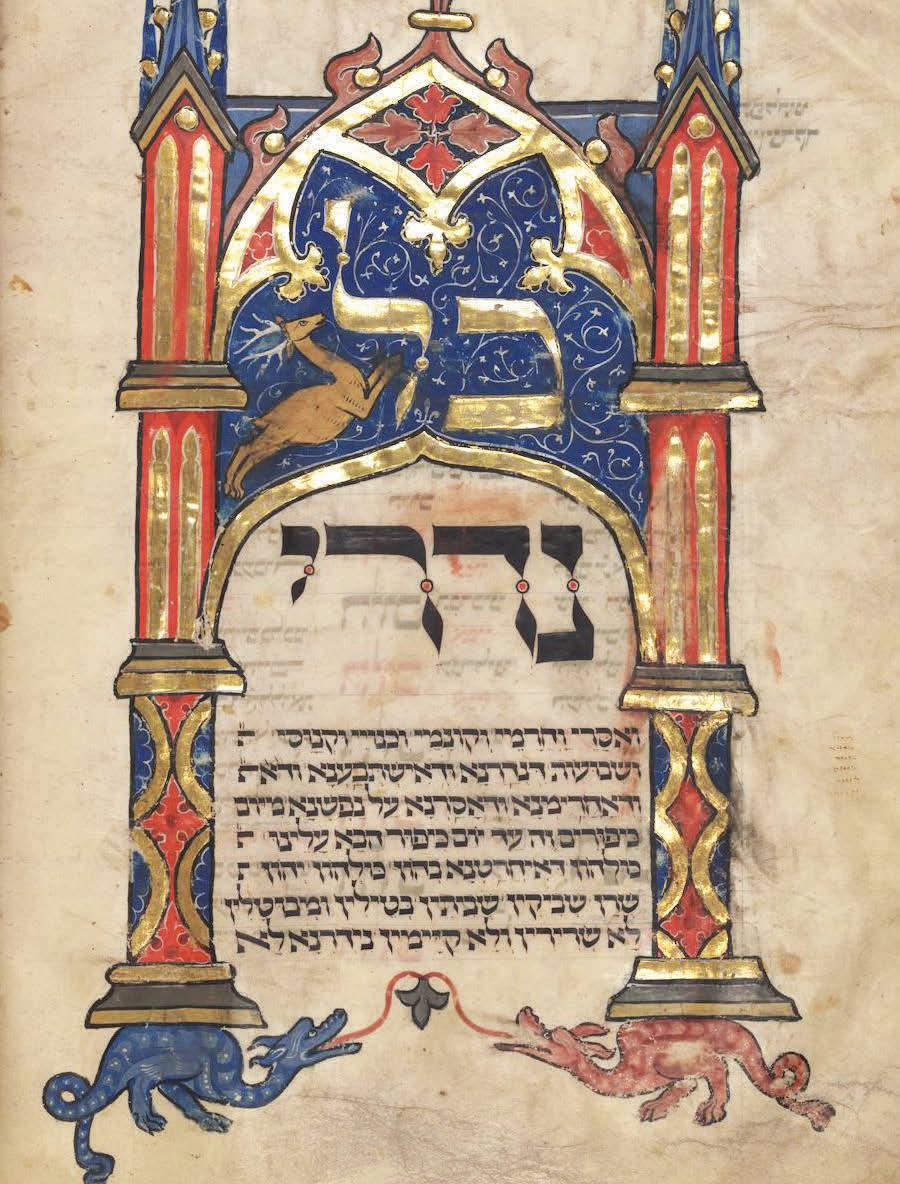 כל
נדרי
ואסרי וחרמי וקונמי וכנויי וקנוסי
ושבועה דנדרנא ודאישתבענא
ודאחרימנא ודאסרנא על נפשנא מיום
כפורים זה עד יום כפור הבא עלינו
כולהון דאיחרטנא בהון כולהון יהון
שרן שביקין שביתין בטילין ומבוטלין
לא שרירין ולא קיימין נידרנא לא